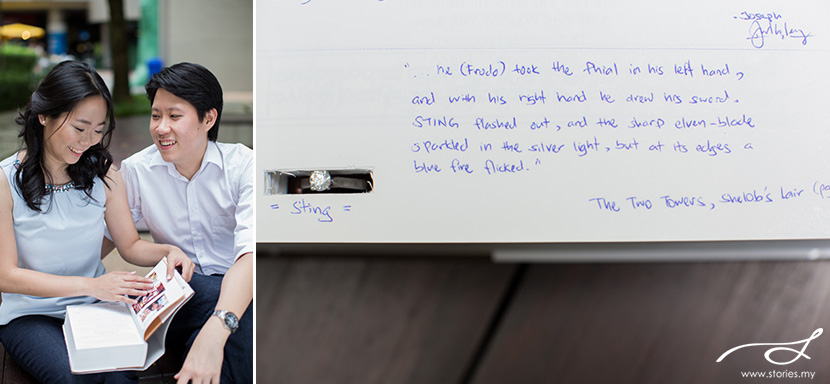 - Joseph
"... he (Frodo) took the Phial in his left hand,
and with his right hand he drew his sword.
STING flashed out, and the sharp elven-blade
sparkled in the silver light, but at its edges a
blue fire flicked."
= Sting =
The Two Towers, Shelob's Lair
www.stories.my